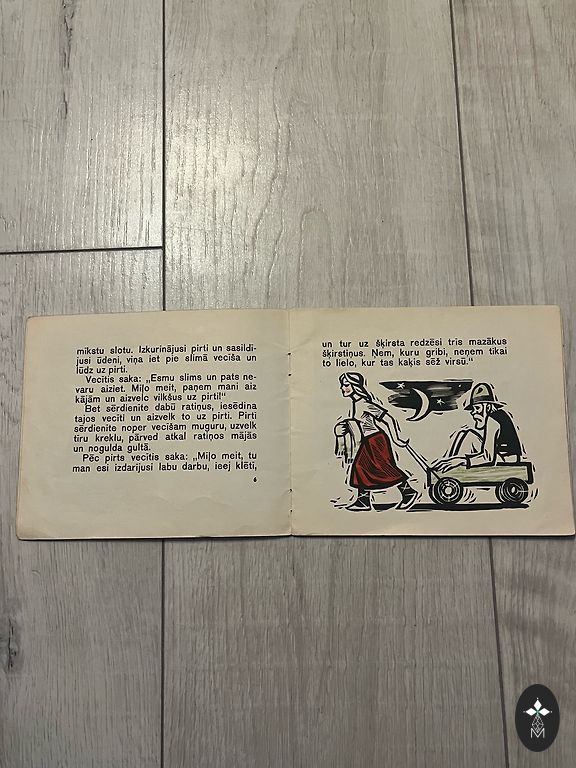 mīkstu slotu. Izkurinājusi pirti un sasildī-
jusi ūdeni, viņa iet pie slimā vecīša un
lūdz uz pirti.
Vecītis saka: „Esmu slims un pats ne-
varu aiziet. Miļo meit, paņem mani aiz
kājām un aizvelc vilkšus uz pirti!"
Bet sērdienīte dabū ratiņus, iesēdina
tajos vecīti un aizvelk to uz pirti. Pirtī
sērdienīte noper vecīšam muguru, uzvelk
tīru kreklu, pārved atkal ratiņos mājās
un nogulda gultā.
Pēc pirts vecītis saka: „Miļo meit, tu
man esi izdarījusi labu darbu, ieej klētī,
6
un tur uz šķirsta redzēsi trīs mazākus
šķirstiņus. Ņem, kuru gribi, neņem tikai
to lielo, kur tas kaķis sēž virsū."
M